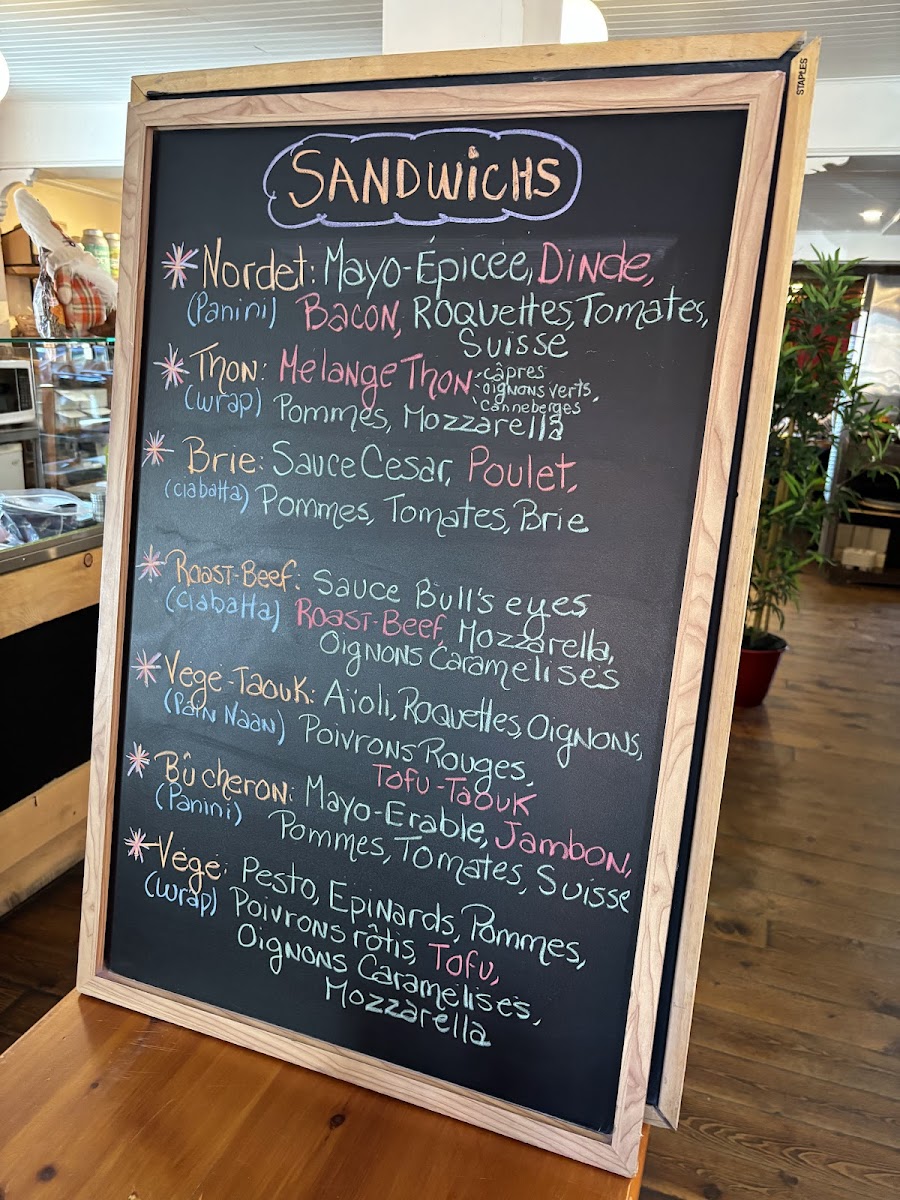 STAPLES
SANDWiCHS
* Nordet: Mayo-Épicée, Dinde,
(Panini) Bacon, Roquettes, Tomates,
Suisse
* Thon: Mélange Thon - câpres
- oignons verts,
- Canneberges
(wrap) Pommes, Mozzarella
* Brie: Sauce César, Poulet,
(ciabatta) Pommes, Tomates, Brie
* Roast-Beef: Sauce Bull's eyes
(ciabatta) Roast-Beef, Mozzarella,
Oignons Caramélisés
* Végé-Taouk: Aïoli, Roquettes, Oignons,
(Pain Naan) Poivrons Rouges,
Tofu-Taouk
* Bûcheron: Mayo-Erable, Jambon,
(Panini) Pommes, Tomates, Suisse
* Végé: Pesto, Epinards, Pommes,
(wrap) Poivrons rôtis, Tofu,
Oignons Caramélisés,
Mozzarella